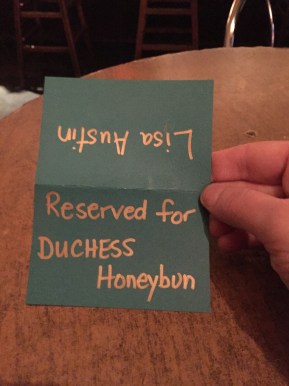 Lisa Austin
Reserved for
DUCHESS
Honeybun